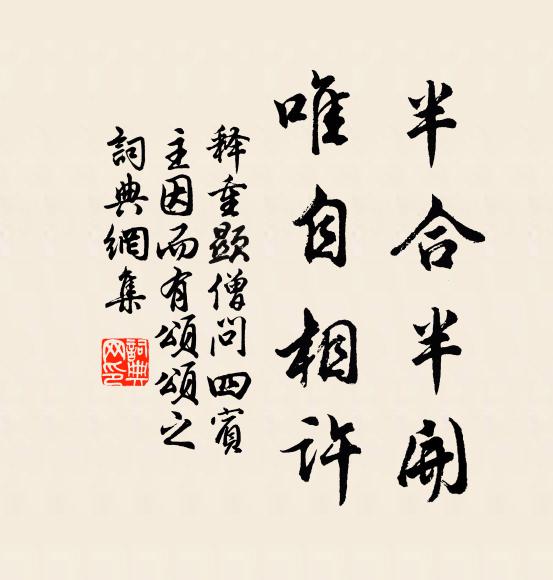 半合半開
唯自相許
释重顯僧問四賓
主因而有頌頌之
詞典網集
詞典
网印